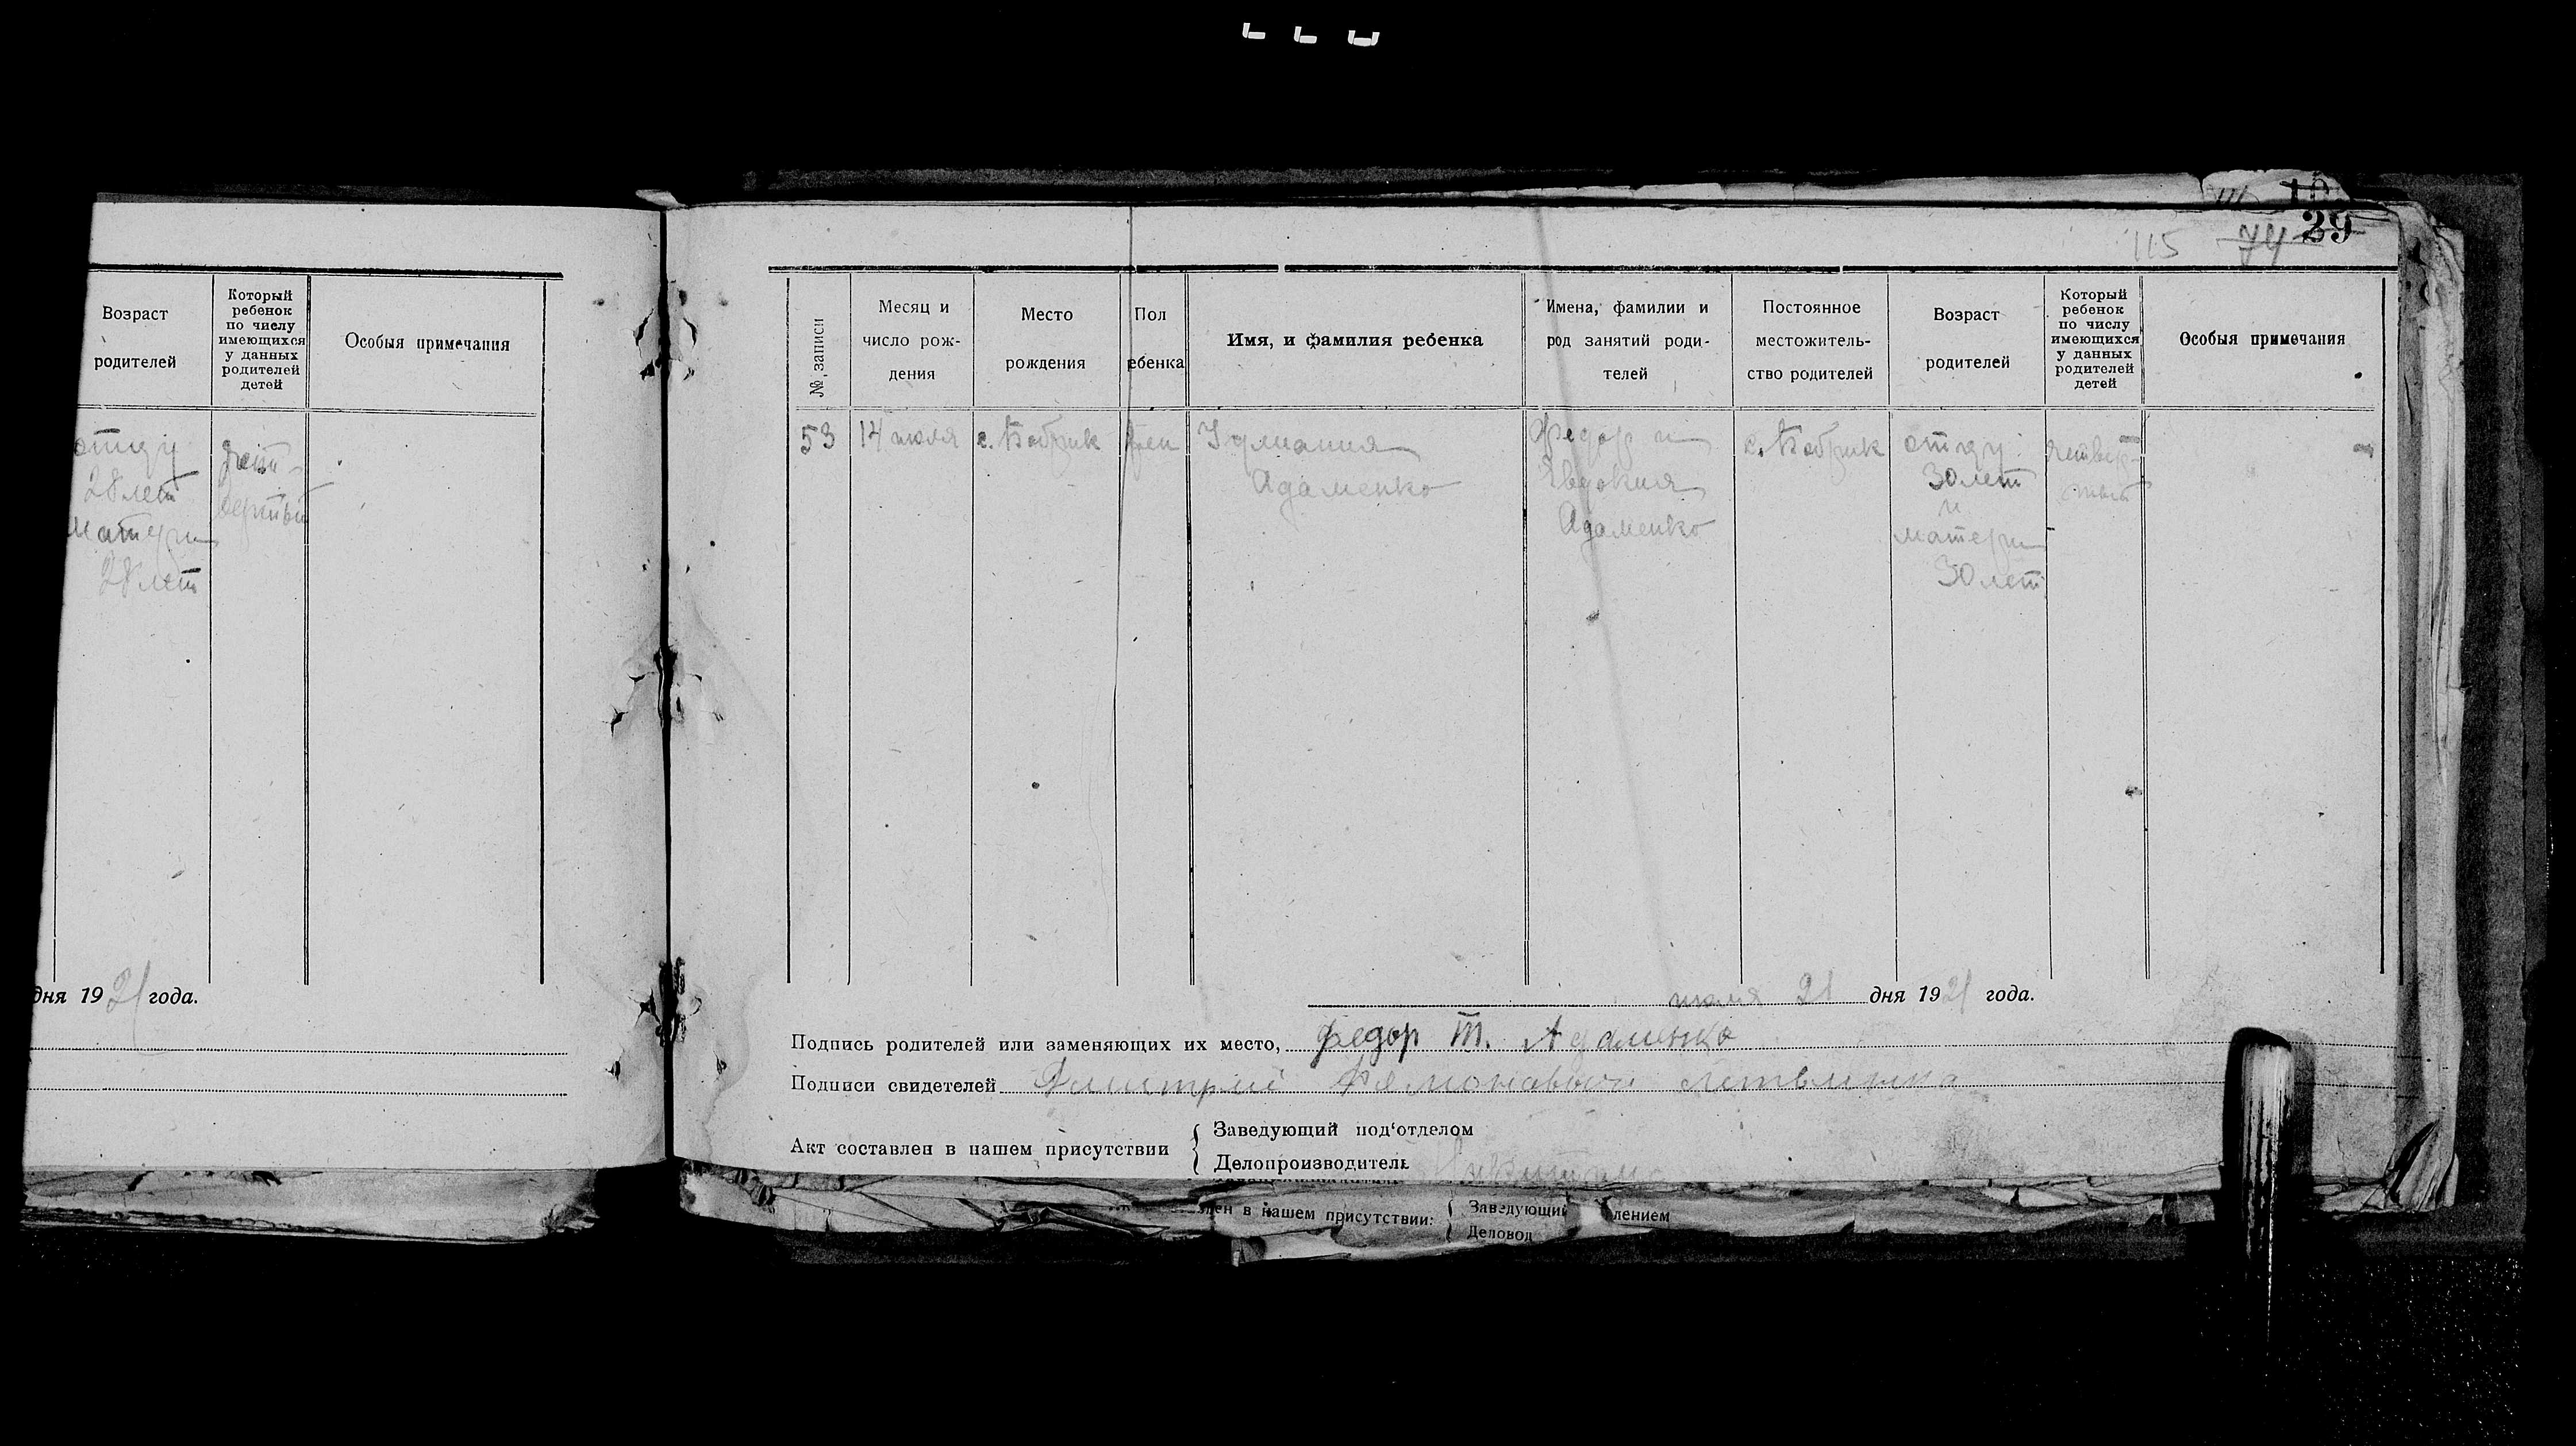 115 74 29
Возраст
родителей
Который
ребенок
по числу
имеющихся
у данных
родителей
детей
Особыя примечания
отцу
28 лет
матери
28 лет
чет-
вертый
дня 1921 года.
№, записи
Месяц и
число рож-
дения
Место
рождения
Пол
ебенка
Имя, и фамилия ребенка
Имена, фамилии и
род занятий роди-
телей
Постоянное
местожитель-
ство родителей
Возраст
родителей
Который
ребенок
по числу
имеющихся
у данных
родителей
детей
Особыя примечания
53
14 июля
с. Бобрик
жен
Адаменко
Федор и
Евдокия
Адаменко
с. Бобрик
отцу
30 лет
и
матери
30 лет
четвер-
тый
июля 21 дня 1921 года.
Подпись родителей или заменяющих их место, Федор Т. Адаменко
Подписи свидетелей Дмитрий
Акт составлен в нашем присутствии
Заведующий под‘отделом
Делопроизводитель
лен в нашем присутствии:
Заведующий лением
Деловод